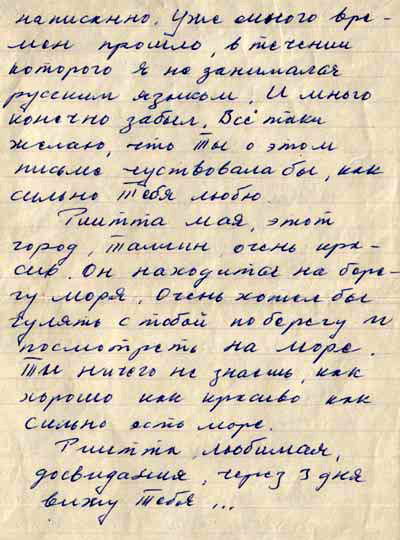 написанно. Уже много вре-
мен прошло, в течении
которого я не занимался
русским языком. И много
конечно забыл. Всё таки
желаю, что Ты о этом
письме чуствовала бы, как
сильно Тебя люблю.
Риитта мая, этот
город, Таллин, очень кра-
сив. Он находится на бере-
гу моря. Очень хотел бы
гулять с тобой по берегу и
посмотреть на море.
Ты ничего не знаешь, как
хорошо как красиво как
сильно есть море.
Риитта, любимая,
досвидания, через 3 дня
вижу Тебя ...